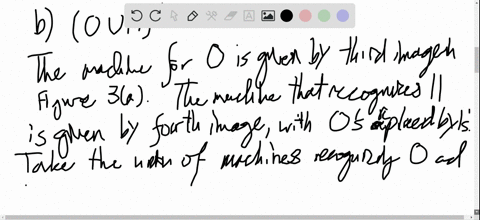 b) (0 U 11)
The machine for 0 is given by third image in
Figure 3(a). The machine that recognizes 11
is given by fourth image, with 0's replaced by 1s.
Take the union of machines recognizing 0 and